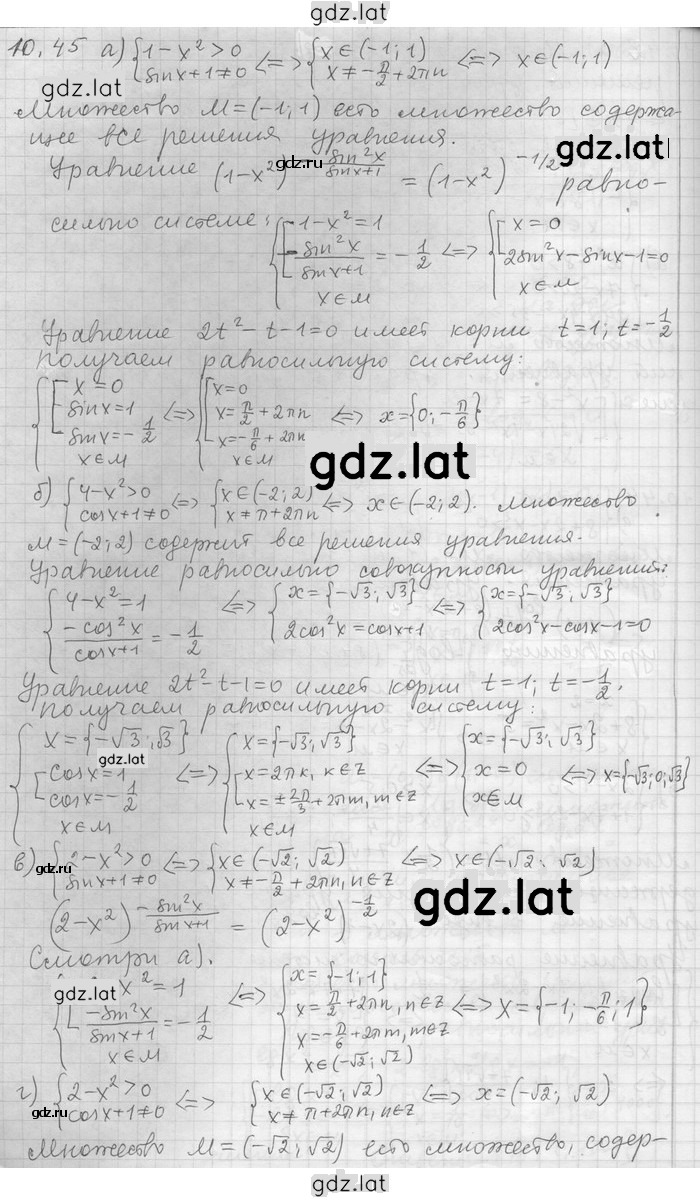 gdz.lat
10,45 а) {1-x²>0 sinx+1≠0 <=> {x∈(-1;1) x≠-π/2+2πn <=> x∈(-1;1)
gdz.lat
Множество M=(-1;1) есть множество содержа-
щее все решения уравнения.
gdz.ru
gdz.lat
Уравнение (1-x²)^(-sin²x/(sinx+1)) = (1-x²)^(-1/2) равно-
сильно системе: {[1-x²=1 -sin²x/(sinx+1)=-1/2 x∈M <=> {[x=0 2sin²x-sinx-1=0 x∈M
Уравнение 2t²-t-1=0 имеет корни t=1; t=-1/2
получаем равносильную систему:
{[x=0 sinx=1 sinx=-1/2 x∈M <=> {[x=0 x=π/2+2πn x=-π/6+2πn x∈M <=> x={0;-π/6}
gdz.lat
б) {4-x²>0 cosx+1≠0 <=> {x∈(-2;2) x≠π+2πn <=> x∈(-2;2). Множество
M=(-2;2) содержит все решения уравнения.
Уравнение равносильно совокупности уравнений:
{4-x²=1 -cos²x/(cosx+1)=-1/2 <=> {x={-√3;√3} 2cos²x=cosx+1 <=> {x={-√3;√3} 2cos²x-cosx-1=0
Уравнение 2t²-t-1=0 имеет корни t=1; t=-1/2.
получаем равносильную систему:
{x={-√3;√3} [cosx=1 cosx=-1/2 x∈M <=> {x={-√3;√3} [x=2πk, k∈Z x=±2π/3+2πm, m∈Z x∈M <=> {x={-√3;√3} x=0 x∈M <=> x={-√3;0;√3}
gdz.lat
в) {2-x²>0 sinx+1≠0 <=> {x∈(-√2;√2) x≠-π/2+2πn, n∈Z <=> x∈(-√2;√2)
gdz.ru
gdz.lat
(2-x²)^(-sin²x/(sinx+1)) = (2-x²)^(-1/2)
Смотри а).
gdz.lat
x²=1 -sin²x/(sinx+1)=-1/2 x∈M <=> {x={-1;1} x=π/2+2πn, n∈Z x=-π/6+2πm, m∈Z x∈(-√2;√2) <=> x={-1;-π/6;1}
г) {2-x²>0 cosx+1≠0 <=> {x∈(-√2;√2) x≠π+2πn, n∈Z <=> x=(-√2;√2)
gdz.ru
Множество M=(-√2;√2) есть множество, содер-
gdz.lat